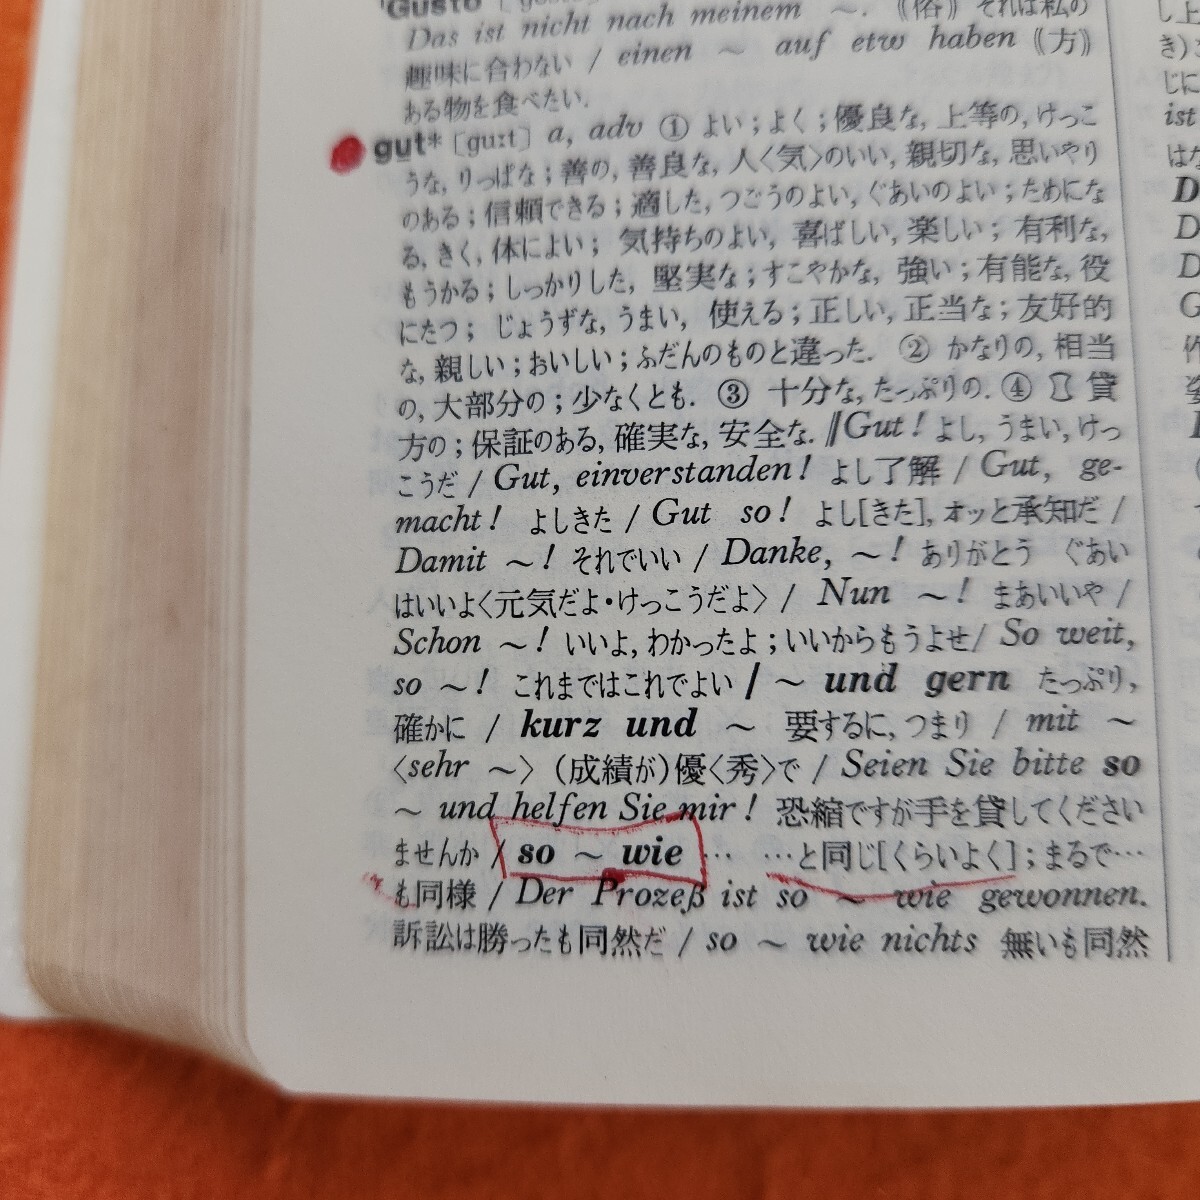 Gusto
Das ist nicht nach meinem ～. 《俗》 それは私の
趣味に合わない / einen ～ auf etw haben 《方》
ある物を食べたい.
gut* [guːt] a, adv ① よい；よく；優良な, 上等の, けっこ
うな, りっぱな；善の, 善良な, 人〈気〉のいい, 親切な, 思いやり
のある；信頼できる；適した, つごうのよい, ぐあいのよい；ためにな
る, きく, 体によい； 気持ちのよい, 喜ばしい, 楽しい；有利な,
もうかる；しっかりした, 堅実な；すこやかな, 強い；有能な, 役
にたつ； じょうずな, うまい, 使える；正しい, 正当な；友好的
な, 親しい；おいしい；ふだんのものと違った. ② かなりの, 相当
の, 大部分の；少なくとも. ③ 十分な, たっぷりの. ④ 貸
方の；保証のある, 確実な, 安全な. ∥Gut! よし, うまい, けっ
こうだ / Gut, einverstanden! よし了解 / Gut, ge-
macht! よしきた / Gut so! よし[きた], オッと承知だ /
Damit ～! それでいい / Danke, ～! ありがとう ぐあい
はいいよ〈元気だよ・けっこうだよ〉 / Nun ～! まあいいや /
Schon ～! いいよ, わかったよ；いいからもうよせ/ So weit,
so ～! これまではこれでよい / ～ und gern たっぷり,
確かに / kurz und ～ 要するに, つまり / mit ～
〈sehr ～〉 (成績が)優〈秀〉で / Seien Sie bitte so
～ und helfen Sie mir! 恐縮ですが手を貸してください
ませんか / so ～ wie … …と同じ[くらいよく]；まるで…
も同様 / Der Prozeß ist so ～ wie gewonnen.
訴訟は勝ったも同然だ / so ～ wie nichts 無いも同然